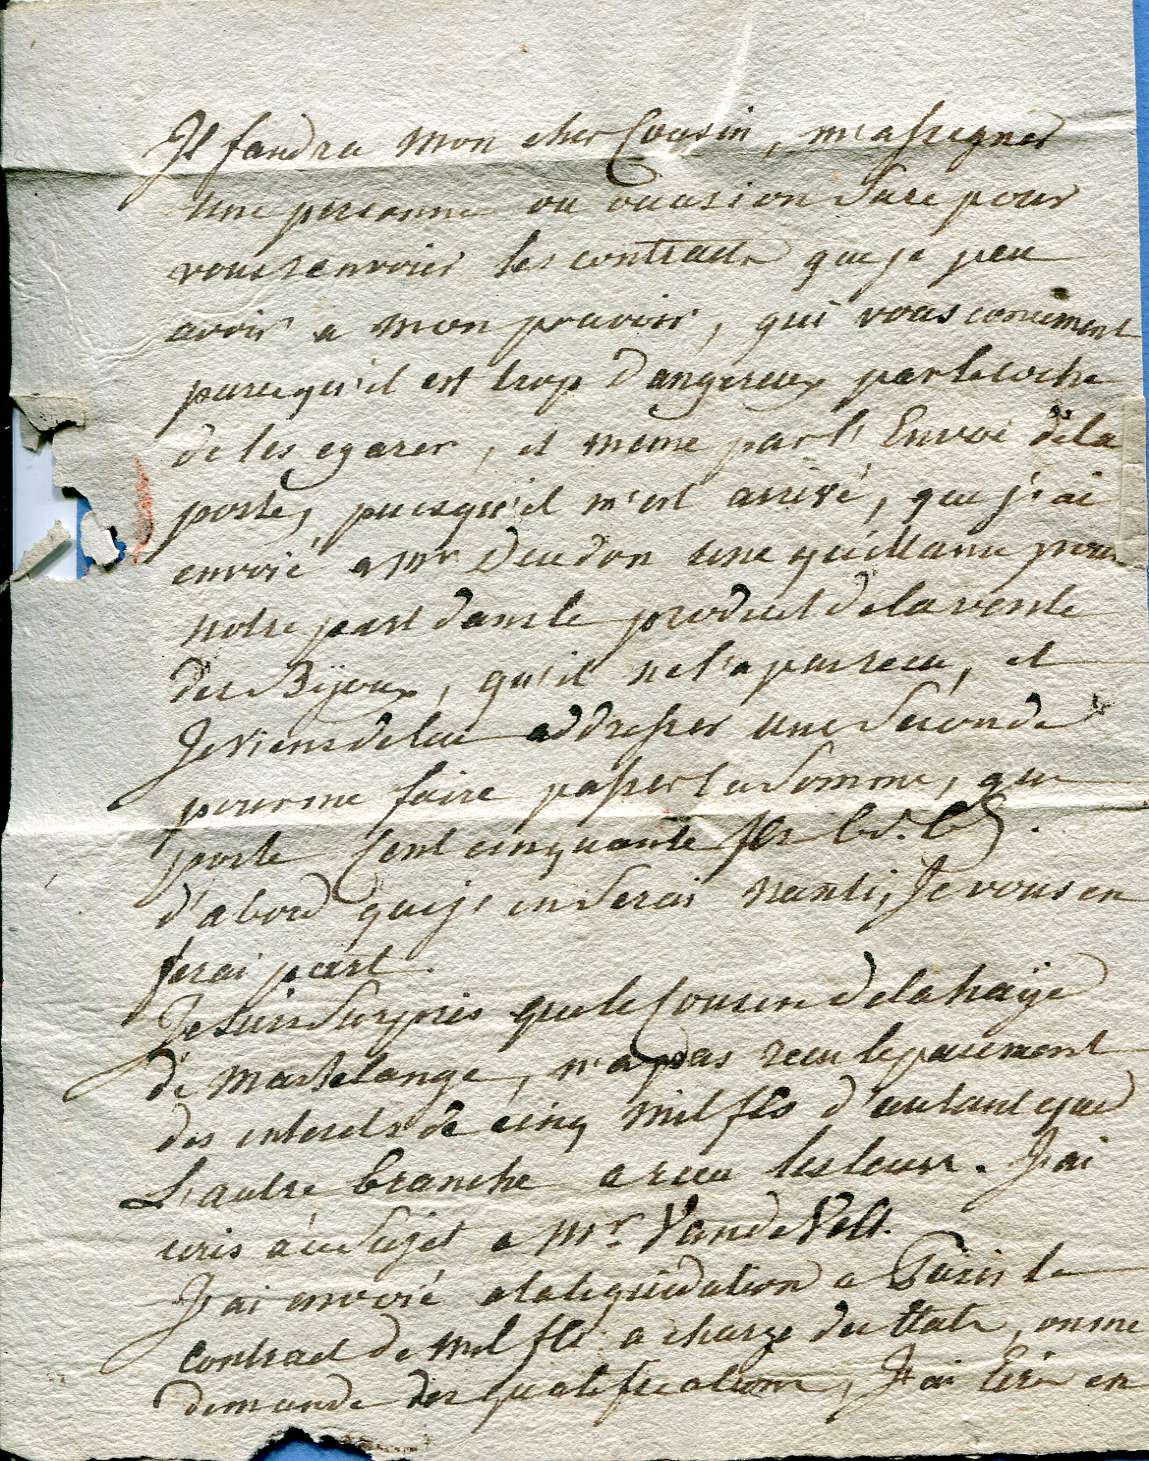 Il faudra mon cher Cousin, m'assigner
une personne ou ocasion Sure pour
vous renvoier les contracts que je peu
avoir a mon pouvoir, qui vous concernent
parcequ'il est trop dangereux par le coche
de les egarer, et meme par l'Envoi de la
poste, puisqu'il m'est arrivé, que j'ai
envoié a Mr Deudon une quittance pour
notre part dans le produit de la vente
des Bijoux, qu'il ne l'a pas recu, et
Je viens de lui addresser une Seconde
pour me faire passer la Somme, que
porte Cent cinquante fls
d'abord que j'en Serai nanti, Je vous en
ferai part.
Je Suis Surpris que le Cousin Delahaÿe
de Martelange, n'a pas recu le paiement
des interets de cinq mil fls d'autant que
L'autre branche a recu les leurs. J'ai
ecris à ce Sujet a Mr. VandeVelt.
J'ai envoié a la liquidation a Paris le
contract de mil fls a charge des Etats, on me
demande des qualifications, J'ai Ecri en